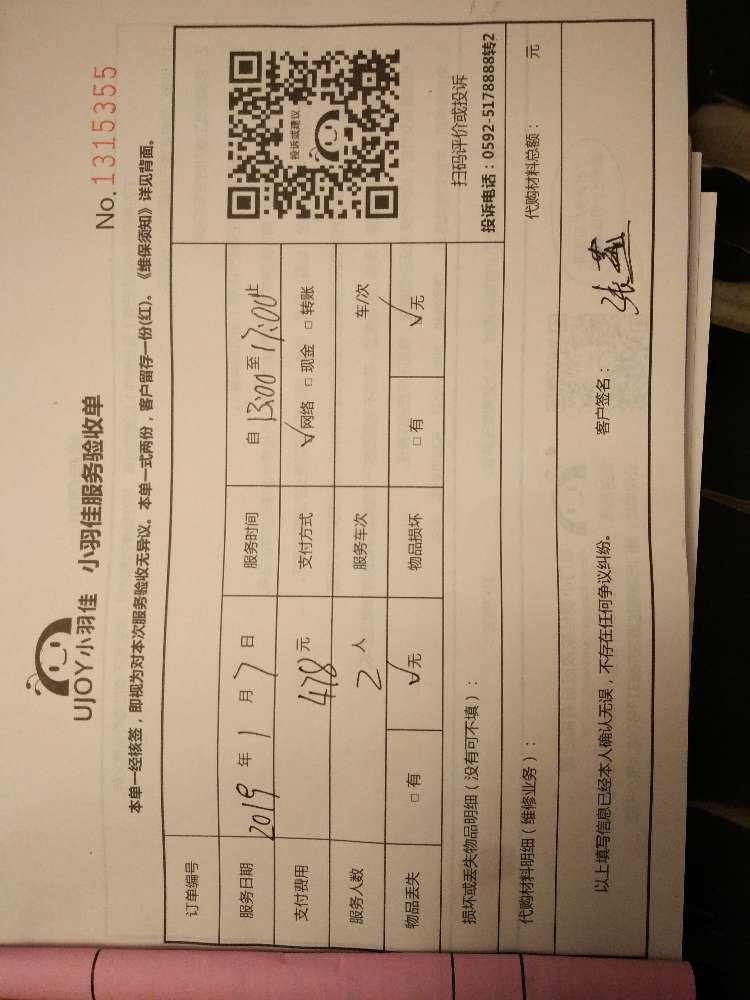 UJOY小羽佳 小羽佳服务验收单
No. 1315355
本单一经核签，即视为对本次服务验收无异议。本单一式两份，客户留存一份(红)。《维保须知》详见背面。
订单编号
服务日期 2019 年 1 月 7 日 服务时间 自 13:00 至 17:00 止
支付费用 478 元 支付方式 √网络 □ 现金 □ 转账
服务人数 2 人 服务车次 车/次
物品丢失 □ 有 √无 物品损坏 □ 有 √无
投诉或建议
扫码评价或投诉
投诉电话：0592-5178888转2
损坏或丢失物品明细（没有可不填）：
代购材料明细（维修业务）： 代购材料总额： 元
以上填写信息已经本人确认无误，不存在任何争议纠纷。 客户签名： 张